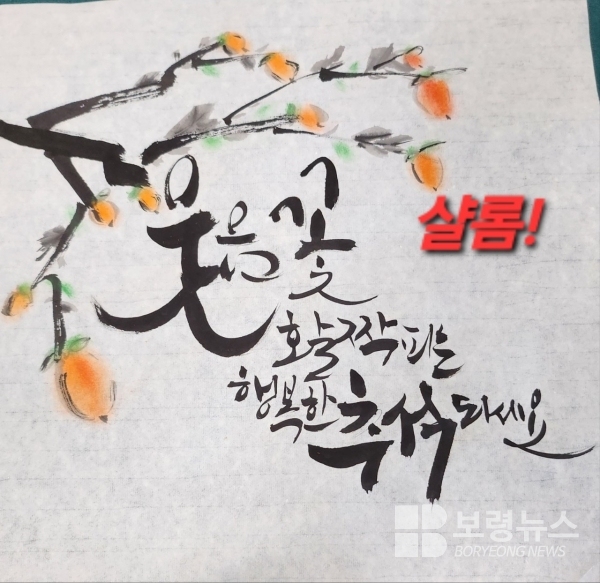 웃음꽃
샬롬!
활짝 피는
행복한 추석 되세요
보령뉴스
BORYEONG NEWS